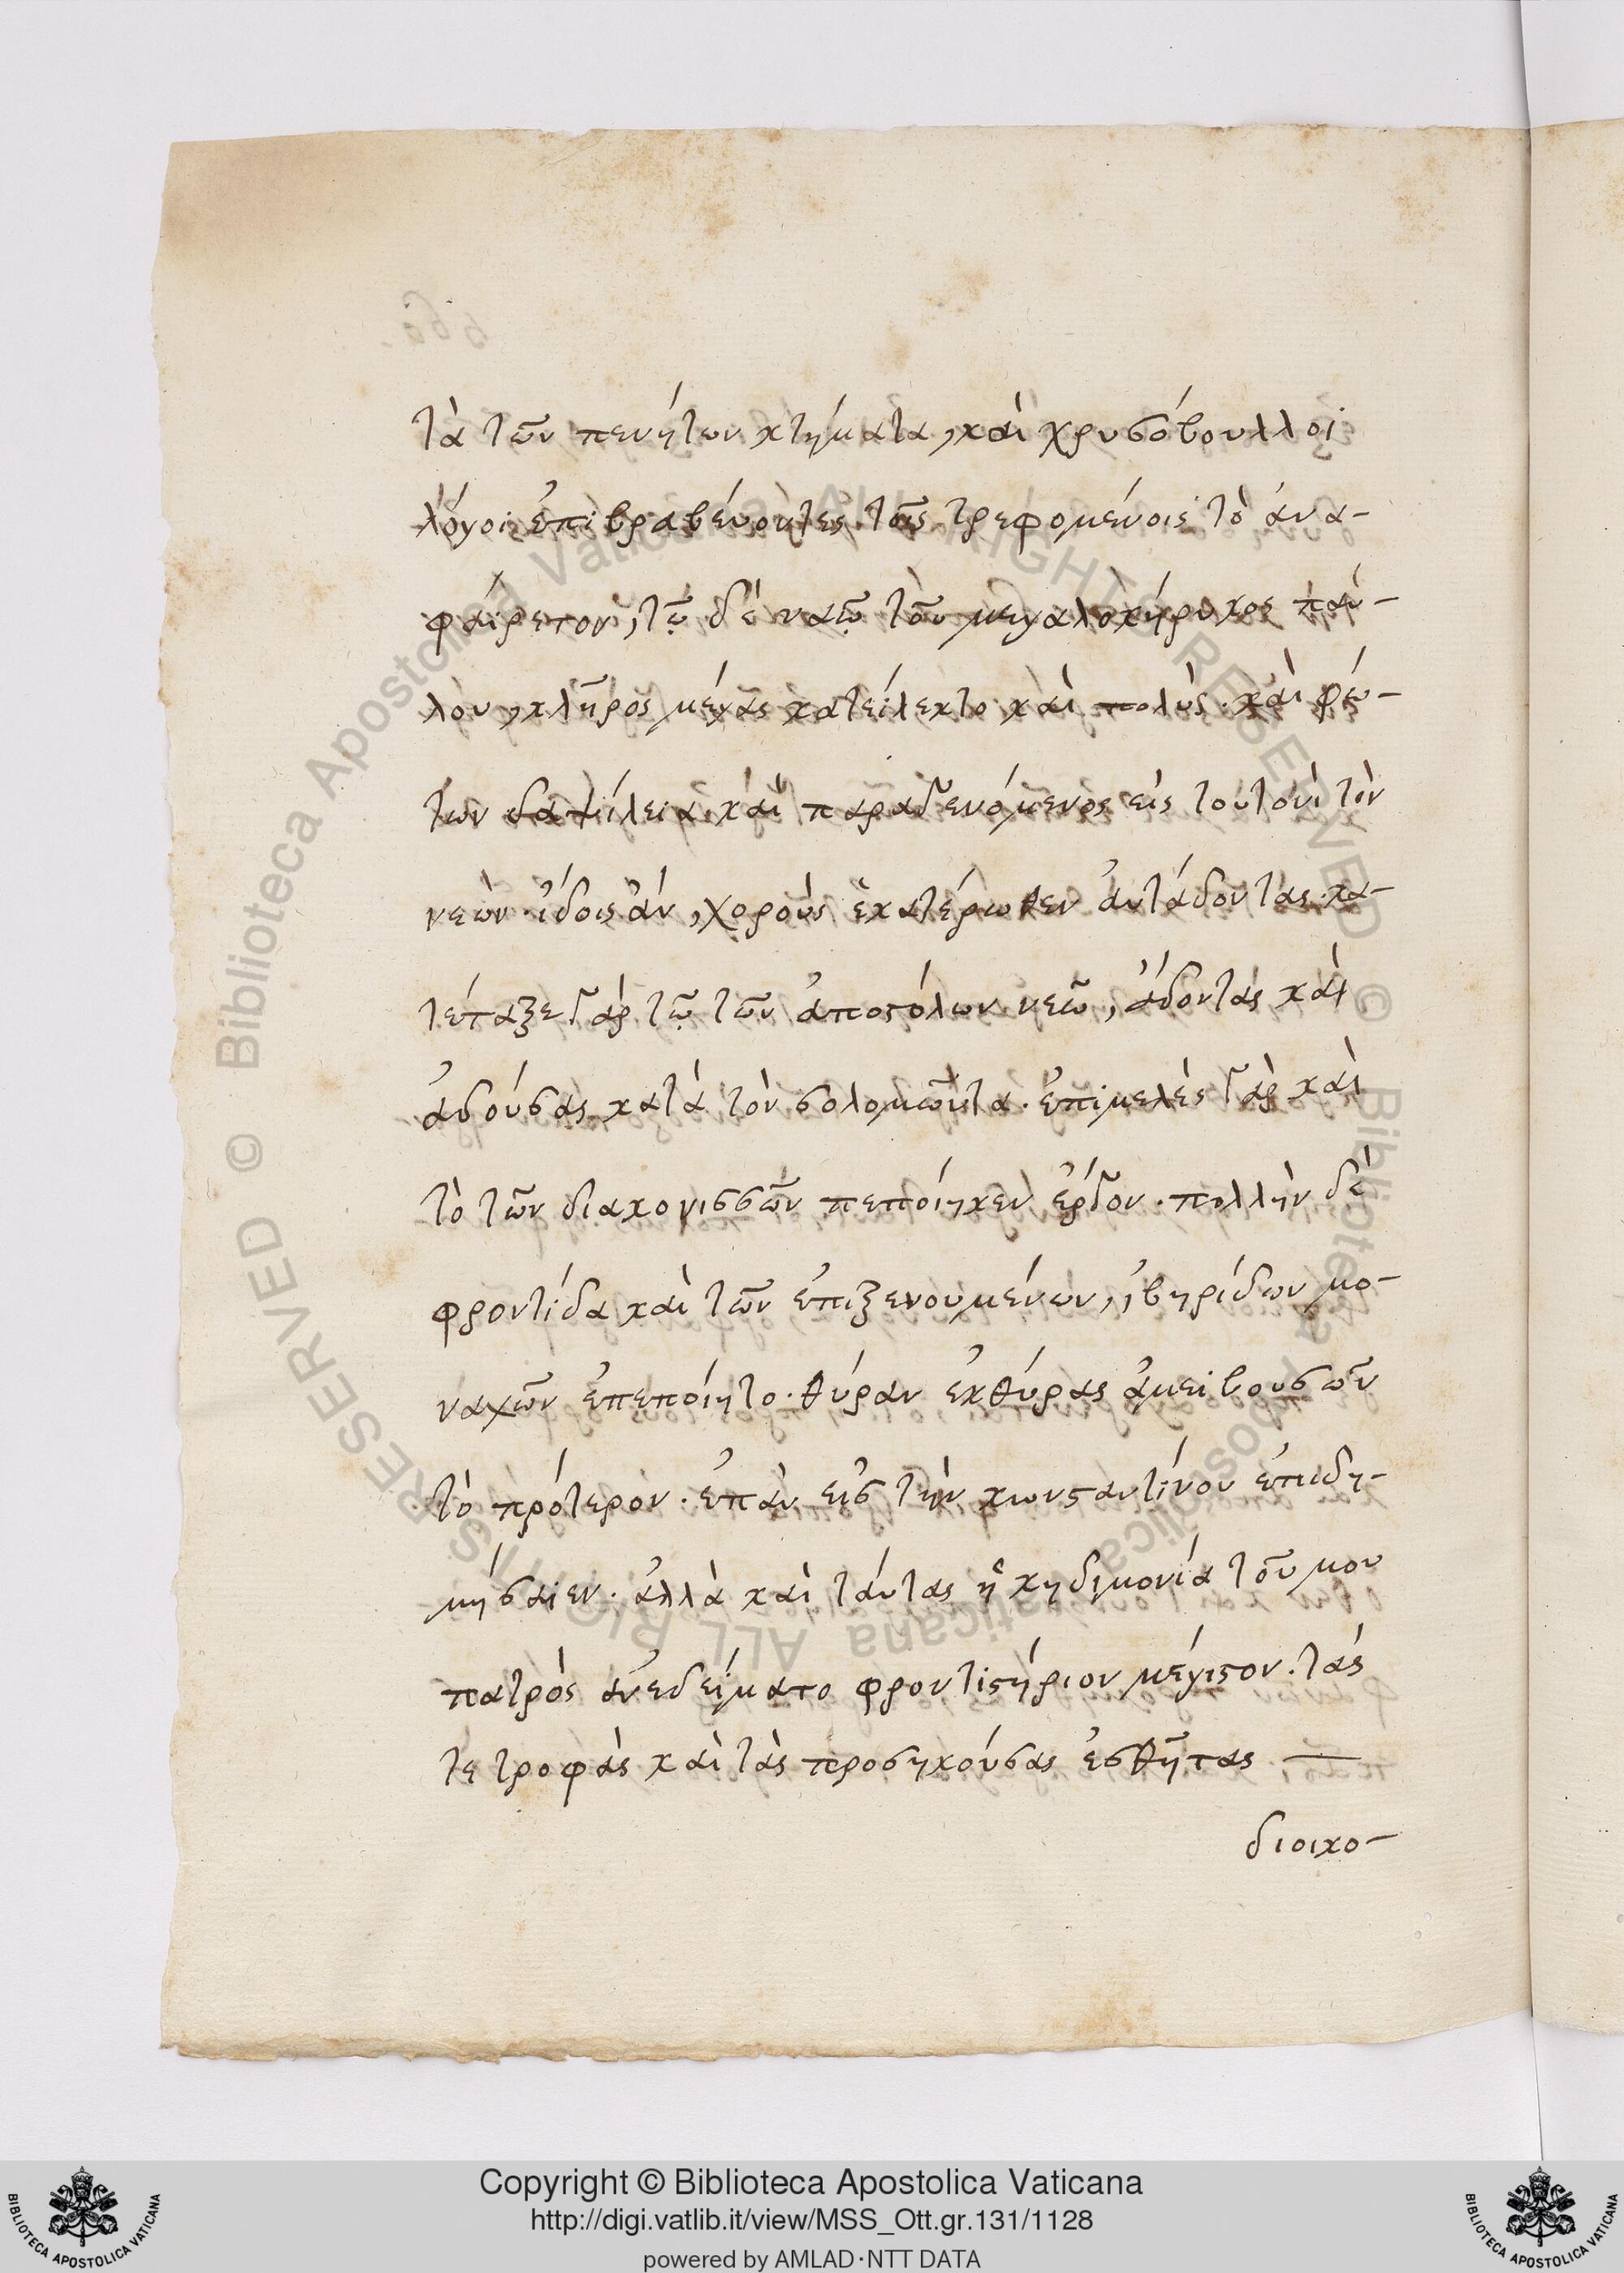 τὰ τῶν πενήτων κτήματα, καὶ χρυσόβουλλοι
λόγοι ἐπιβραβεύοντες τοῖς τρεφομένοις τὸ ἀνα-
φαίρετον, τῷ δὲ ναῷ τοῦ μεγαλοκήρυκος παύ-
λου, κλῆρος μέγας κατείλεκτο καὶ πολύς. καὶ φώ-
των δαψίλεια. καὶ παραγενόμενος εἰς τουτονὶ τὸν
νεὼν. ἴδοις ἂν, χοροὺς ἑκατέρωθεν ἀντάδοντας. κα-
τέταξε γὰρ τῷ τῶν ἀποστόλων νεῷ, ἄδοντας καὶ
ἀδούσας κατὰ τὸν σολομῶντα. ἐπιμελὲς γὰρ καὶ
τὸ τῶν διακονισσῶν πεποίηκεν ἔργον. πολλὴν δὲ
φροντίδα καὶ τῶν ἐπιξενουμένων, ἰβηρίδων μο-
ναχῶν ἐπεποίητο. θύραν ἐκθύρας ἀμειβουσῶν
τὸ πρότερον. ἐπὰν εἰς τὴν κωνσταντίνου ἐπιδη-
μήσαιεν. ἀλλὰ καὶ ταύτας ἡ κηδιμονία τοῦ μου
πατρὸς ἀνεδείματο φροντιστήριον μέγιστον. τάς
τε τροφὰς καὶ τὰς προσηκούσας ἐσθῆτας —
διοικο-
Copyright © Biblioteca Apostolica Vaticana
http://digi.vatlib.it/view/MSS_Ott.gr.131/1128
powered by AMLAD·NTT DATA
BIBLIOTECA APOSTOLICA VATICANA
BIBLIOTECA APOSTOLICA VATICANA
© Biblioteca Apostolica Vaticana ALL RIGHTS RESERVED © Biblioteca Apostolica Vaticana ALL RIGHTS RESERVED